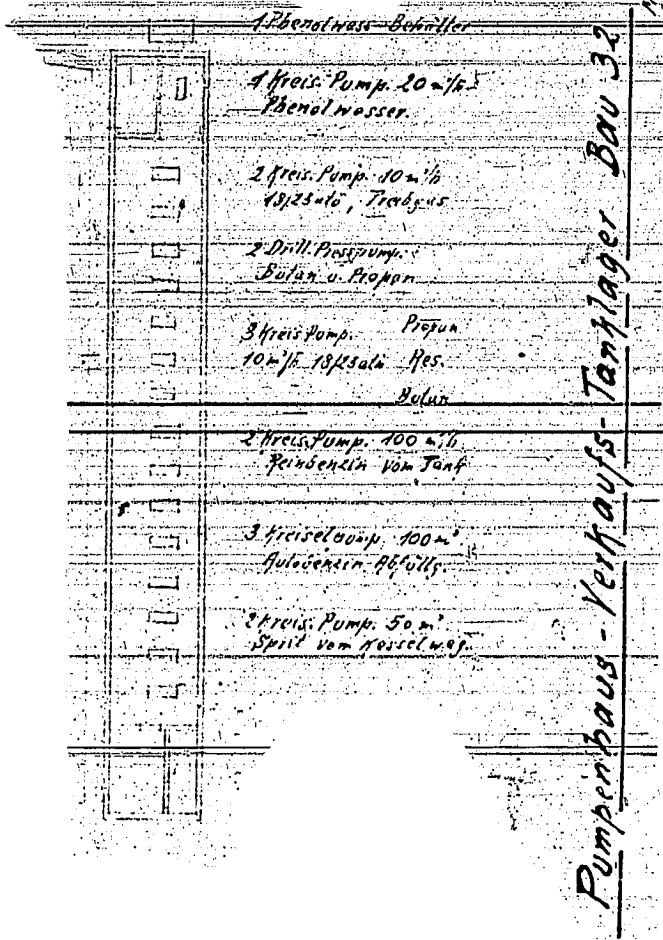 1 Phenolwass-Behälter
1 Kreis. Pump. 20 m³/h
Phenolwasser.
2 Kreis. Pump. 10 m³/h
18/23 atü, Treibgas
2 Drill. Presspump.
Butan u. Propan
3 Kreis Pump. Propan
10 m³/h 18/23 atü Res.
Butan
2 Kreis. Pump. 100 m³/h
Reinbenzin vom Tank
3 Kreiselpump. 100 m³
Autobenzin Abfüllg.
2 Kreis. Pump. 50 m³
Sprit vom Kesselwag.
Pumpenhaus-Verkaufs-Tanklager Bau 32